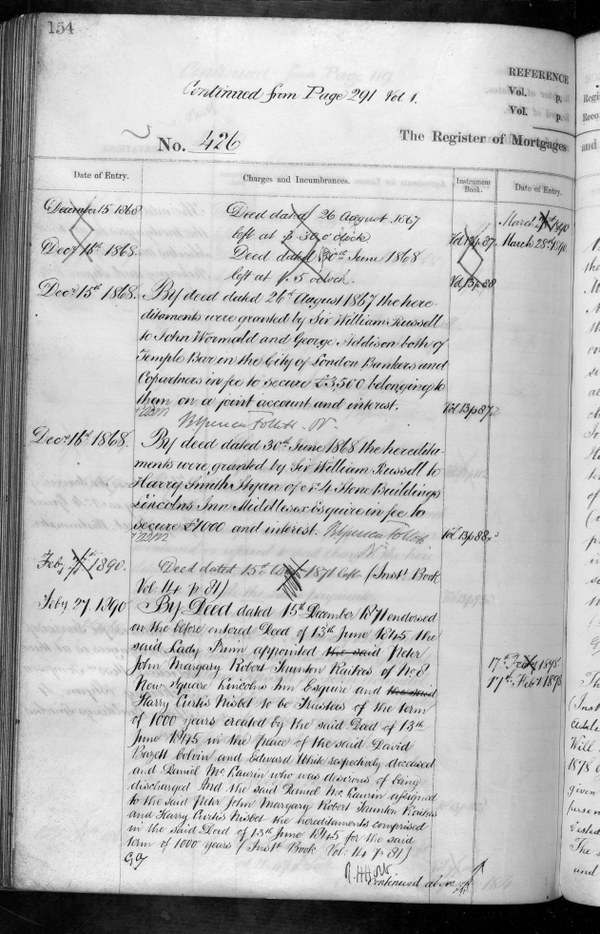 154
Continued from Page 291 Vol 1.
REFERENCE
Vol. p.
Vol. p.
No. 426
The Register of Mortgages
Date of Entry.
Charges and Incumbrances.
Instrument Book.
Date of Entry.
December 15 1868
Deed dated 26 August 1867
left at
o'clock.
Vol 13 p 87.
March 1890
Decr 16th 1868.
Deed dated 30th June 1868
March 28th 1890
left at p. 5 o'clock.
Vol 13 p 88
Decr 15th 1868.
By deed dated 26th August 1867 the here-
ditaments were granted by Sir William Russell
to John Wormald and George Addison both of
Temple Bar in the City of London Bankers and
Copartners in fee to secure £3,500 belonging to
them on a joint account and interest.
Vol 13 p 87
Decr 16th 1868.
By deed dated 30th June 1868 the heredita-
ments were granted by Sir William Russell to
Harry Smith Styan of No 4 Stone Buildings
Lincolns Inn Middlesex Esquire in fee to
secure £1000 and interest.
Vol. 13 p 88
Feby 1890.
Deed dated 15th 1871 left (Inst. Book
Vol. 14 p 81)
Feby 27 1890
By Deed dated 15th December 1871 endorsed
on the before entered Deed of 13th June 1845 the
said Lady appointed the said Peter
John Margary Robert Raikes of No 8
New Square Lincolns Inn Esquire and the said
Harry Curtis Nisbet to be Trustees of the term
of 1000 years created by the said Deed of 13th
June 1845 in the place of the said David
Colvin and Edward White respectively deceased
and Daniel McLaurin who was desirous of being
discharged And the said Daniel McLaurin assigned
to the said Peter John Margary Robert Raikes
and Harry Curtis Nisbet the hereditaments comprised
in the said Deed of 13th June 1845 for the said
term of 1000 years (Inst. Book Vol. 14 p 81)
17th Feby 1898
17th Feby 1898
Continued above